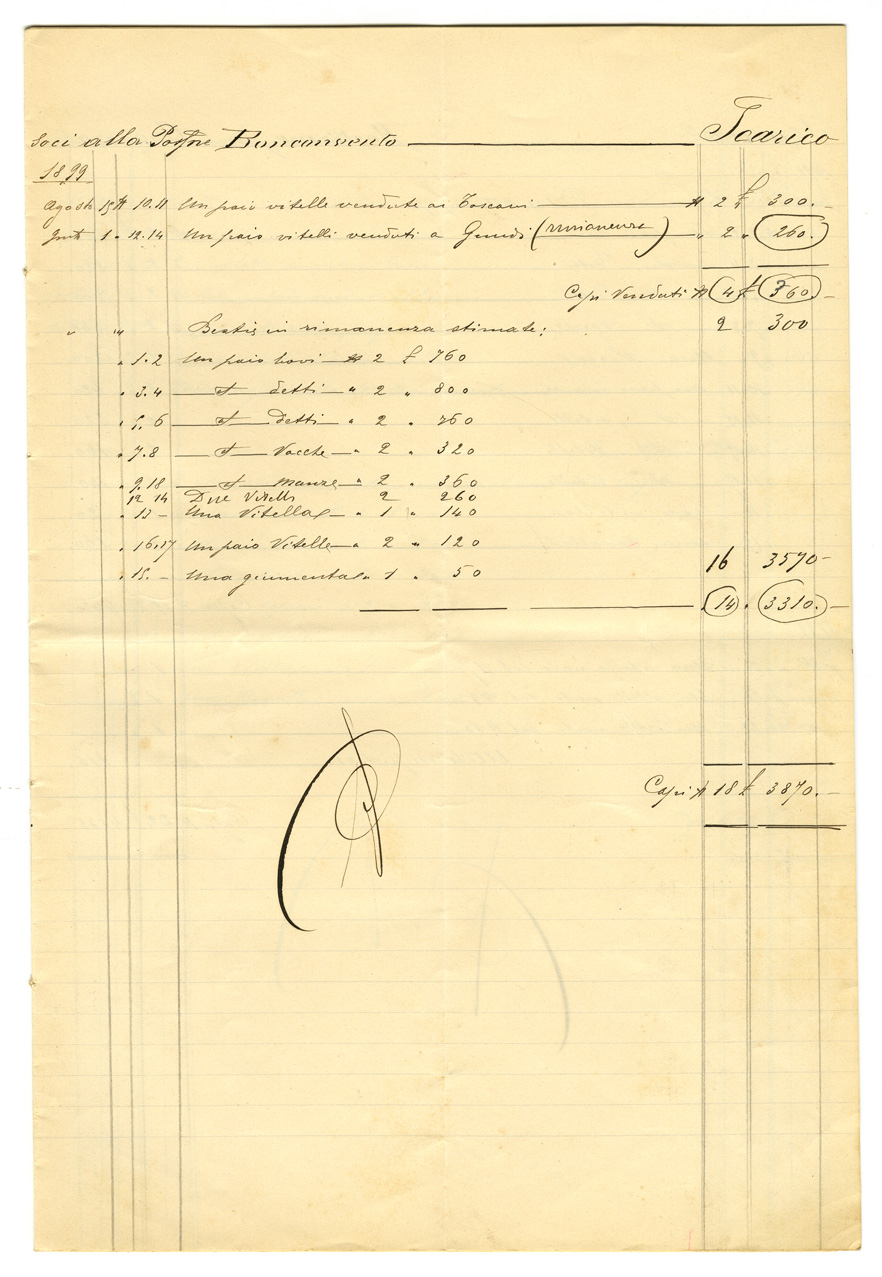 Soci alla Buonconvento Scarico
1899
Agosto 15 N 10.11 Un paio vitelle vendute ai Toscani N 2 £ 300.-
1 " 12.14 Un paio vitelli venduti a (rimanenza) " 2 " 260.
Capi Venduti N 4 £ 360 -
" " Bestie in rimanenza stimate: 2 300
" 1.2 Un paio bovi N 2 £ 760
" 3.4 detti " 2 " 800
" 5. 6 Detti " 2 " 760
" 7.8 Vacche " 2 " 320
" 9.18 manze " 2 " 360
12 14 Due Vitelli 2 260
" 13 - Una Vitella " 1 " 140
" 16.17 Un paio Vitelle " 2 " 120
16 3570-
" 15. - Una giumenta " 1 " 50
14 " 3310. -
Capi N 18 £ 3870. -